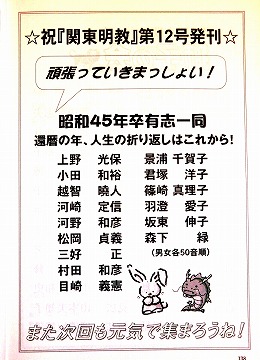 ☆祝『関東明教』第12号発刊☆
頑張っていきまっしょい！
昭和45年卒有志一同
還暦の年、人生の折り返しはこれから！
上野　光保　景浦　千賀子
小田　和裕　君塚　洋子
越智　暁人　篠崎　真理子
河崎　定信　羽澄　愛子
河野　和彦　坂東　伸子
松岡　貞義　森下　緑
三好　正　（男女各50音順）
村田　和彦
目崎　義憲
また次回も元気で集まろうね！
138